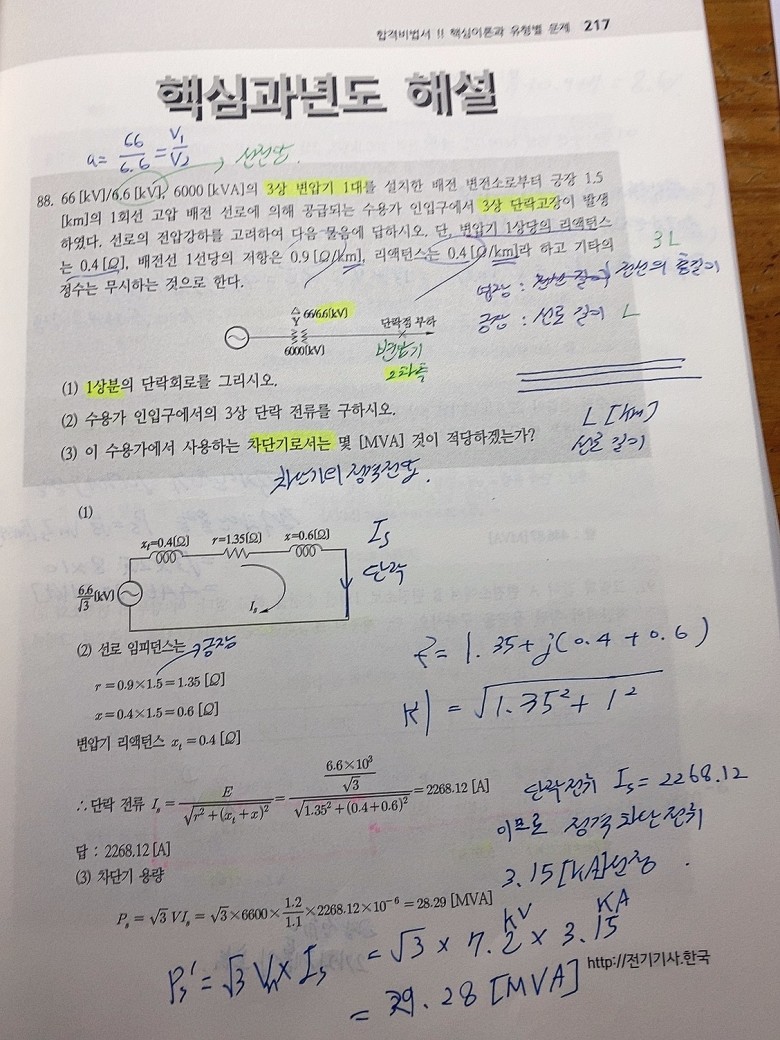 합격비법서 !! 핵심이론과 유형별 문제 217
핵심과년도 해설
a = 66/6.6 = V₁/V₂
선전압.
88. 66 [kV]/6.6 [kV], 6000 [kVA]의 3상 변압기 1대를 설치한 배전 변전소로부터 긍장 1.5
[km]의 1회선 고압 배전 선로에 의해 공급되는 수용가 인입구에서 3상 단락고장이 발생
하였다. 선로의 전압강하를 고려하여 다음 물음에 답하시오. 단, 변압기 1상당의 리액턴스
는 0.4 [Ω], 배전선 1선당의 저항은 0.9 [Ω/km], 리액턴스는 0.4 [Ω/km]라 하고 기타의
정수는 무시하는 것으로 한다.
3L
연장 : 전선의 총길이
긍장 : 선로 길이 L
△ 66/6.6[kV]
Y
6000[kV]
단락점 부하
변압기
2차측
(1) 1상분의 단락회로를 그리시오.
(2) 수용가 인입구에서의 3상 단락 전류를 구하시오.
(3) 이 수용가에서 사용하는 차단기로서는 몇 [MVA] 것이 적당하겠는가?
L [km]
선로 길이
차단기의 정격전압.
(1)
xₜ=0.4[Ω] r=1.35[Ω] x=0.6[Ω]
6.6/√3 [kV]
Iₛ
Iₛ
단락
(2) 선로 임피던스는
긍장
r = 0.9×1.5 = 1.35 [Ω]
x = 0.4×1.5 = 0.6 [Ω]
변압기 리액턴스 xₜ = 0.4 [Ω]
= 1.35 + j(0.4 + 0.6)
= √(1.35² + 1²)
∴ 단락 전류 Iₛ = E/√(r²+(xₜ+x)²) = (6.6×10³/√3)/√(1.35²+(0.4+0.6)²) = 2268.12 [A]
답 : 2268.12 [A]
단락전류 Iₛ = 2268.12
이므로 정격차단전류
3.15[KA]선정 .
(3) 차단기 용량
Pₛ = √3 VIₛ = √3×6600×1.2/1.1×2268.12×10⁻⁶ = 28.29 [MVA]
Pₛ' = √3 Vₙ × Iₛ = √3 × 7.2 × 3.15
KV KA
= 39.28 [MVA]
http://전기기사.한국